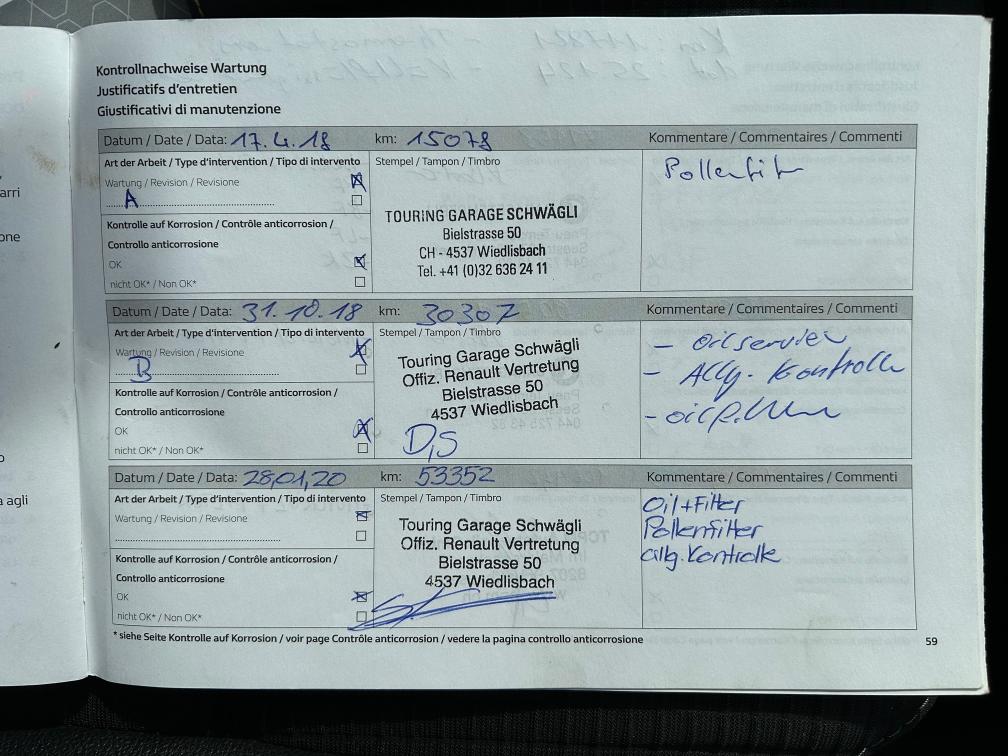 Kontrollnachweise Wartung
Justificatifs d'entretien
Giustificativi di manutenzione
Datum / Date / Data: 17.4.18 km: 15078 Kommentare / Commentaires / Commenti
Art der Arbeit / Type d'intervention / Tipo di intervento Stempel / Tampon / Timbro
Wartung / Revision / Revisione
A
Kontrolle auf Korrosion / Contrôle anticorrosion /
Controllo anticorrosione
OK
nicht OK* / Non OK*
TOURING GARAGE SCHWÄGLI
Bielstrasse 50
CH - 4537 Wiedlisbach
Tel. +41 (0)32 636 24 11
Pollenfilter
Datum / Date / Data: 31.10.18 km: 30307 Kommentare / Commentaires / Commenti
Art der Arbeit / Type d'intervention / Tipo di intervento Stempel / Tampon / Timbro
Wartung / Revision / Revisione
B
Kontrolle auf Korrosion / Contrôle anticorrosion /
Controllo anticorrosione
OK
nicht OK* / Non OK*
Touring Garage Schwägli
Offiz. Renault Vertretung
Bielstrasse 50
4537 Wiedlisbach
D,S
- Oilservice
- Allg. Kontrolle
- oilfilter
Datum / Date / Data: 28,01,20 km: 53352 Kommentare / Commentaires / Commenti
Art der Arbeit / Type d'intervention / Tipo di intervento Stempel / Tampon / Timbro
Wartung / Revision / Revisione
Kontrolle auf Korrosion / Contrôle anticorrosion /
Controllo anticorrosione
OK
nicht OK* / Non OK*
Touring Garage Schwägli
Offiz. Renault Vertretung
Bielstrasse 50
4537 Wiedlisbach
Oil+Filter
Pollenfilter
allg. Kontrolle
* siehe Seite Kontrolle auf Korrosion / voir page Contrôle anticorrosion / vedere la pagina controllo anticorrosione
59
arri
one
a agli